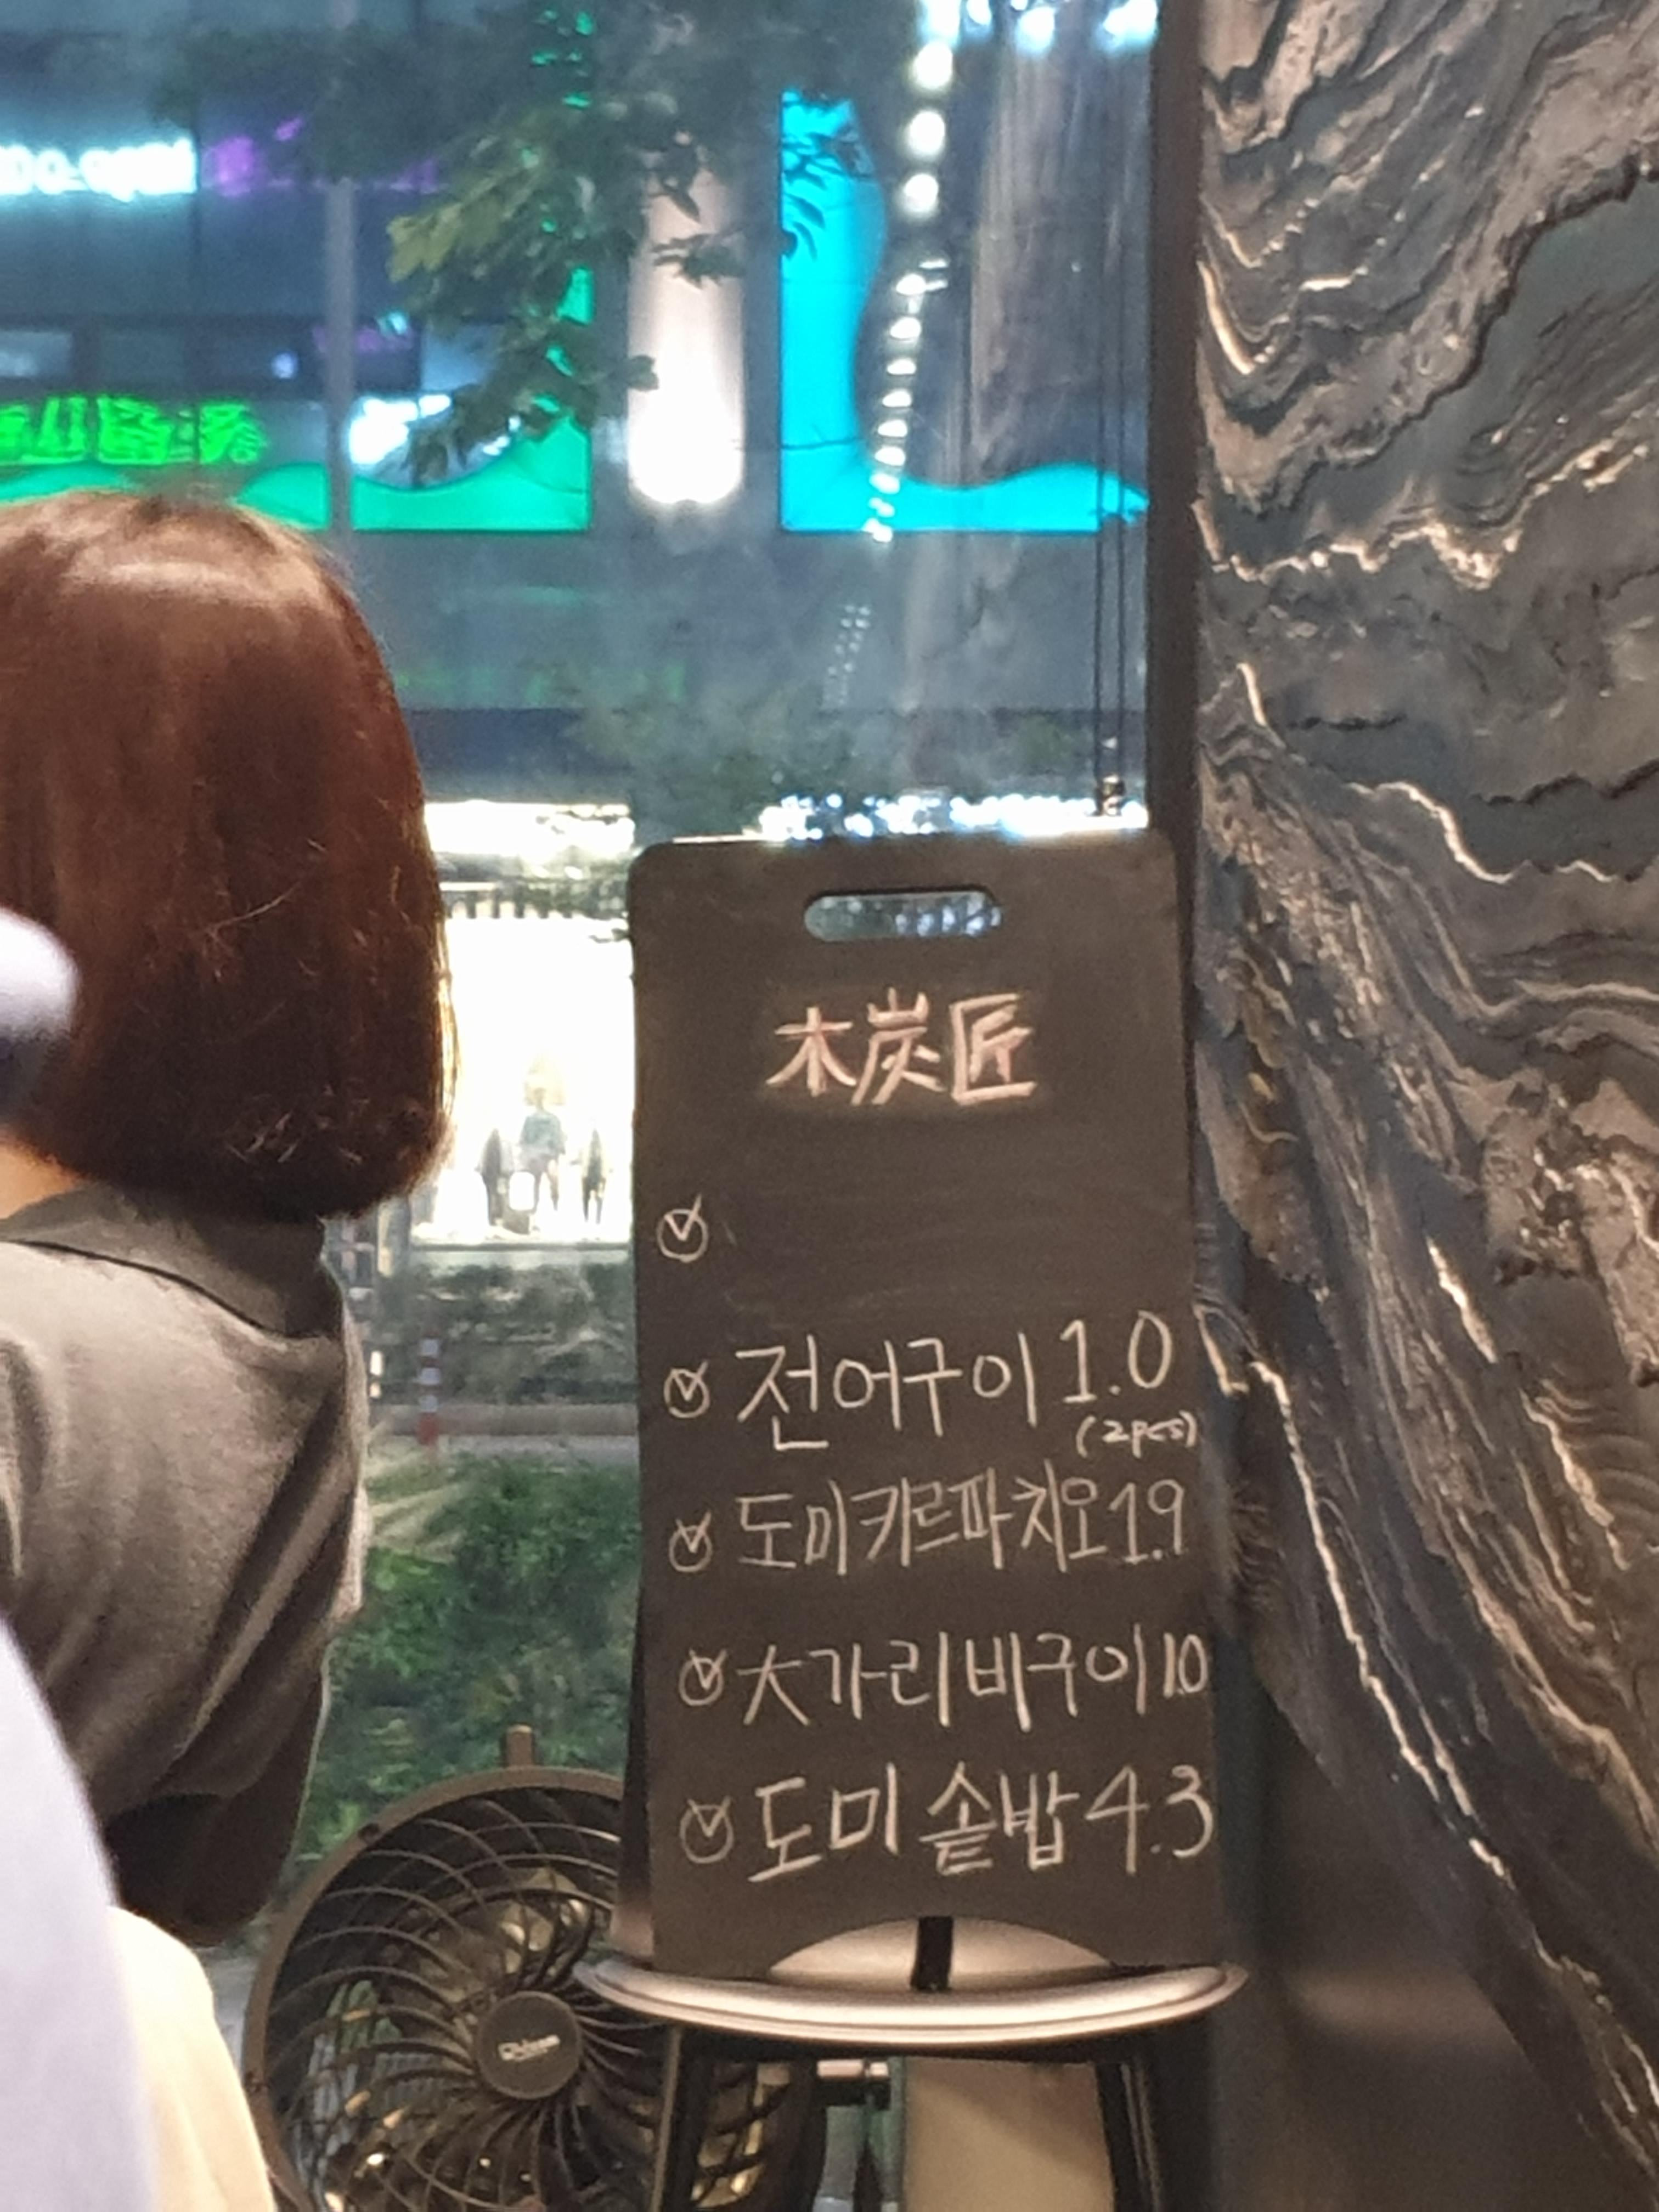 木炭匠
전어구이 1.0
(2pcs)
도미카르파치오 1.9
大가리비구이 1.0
도미 솥밥 4.3